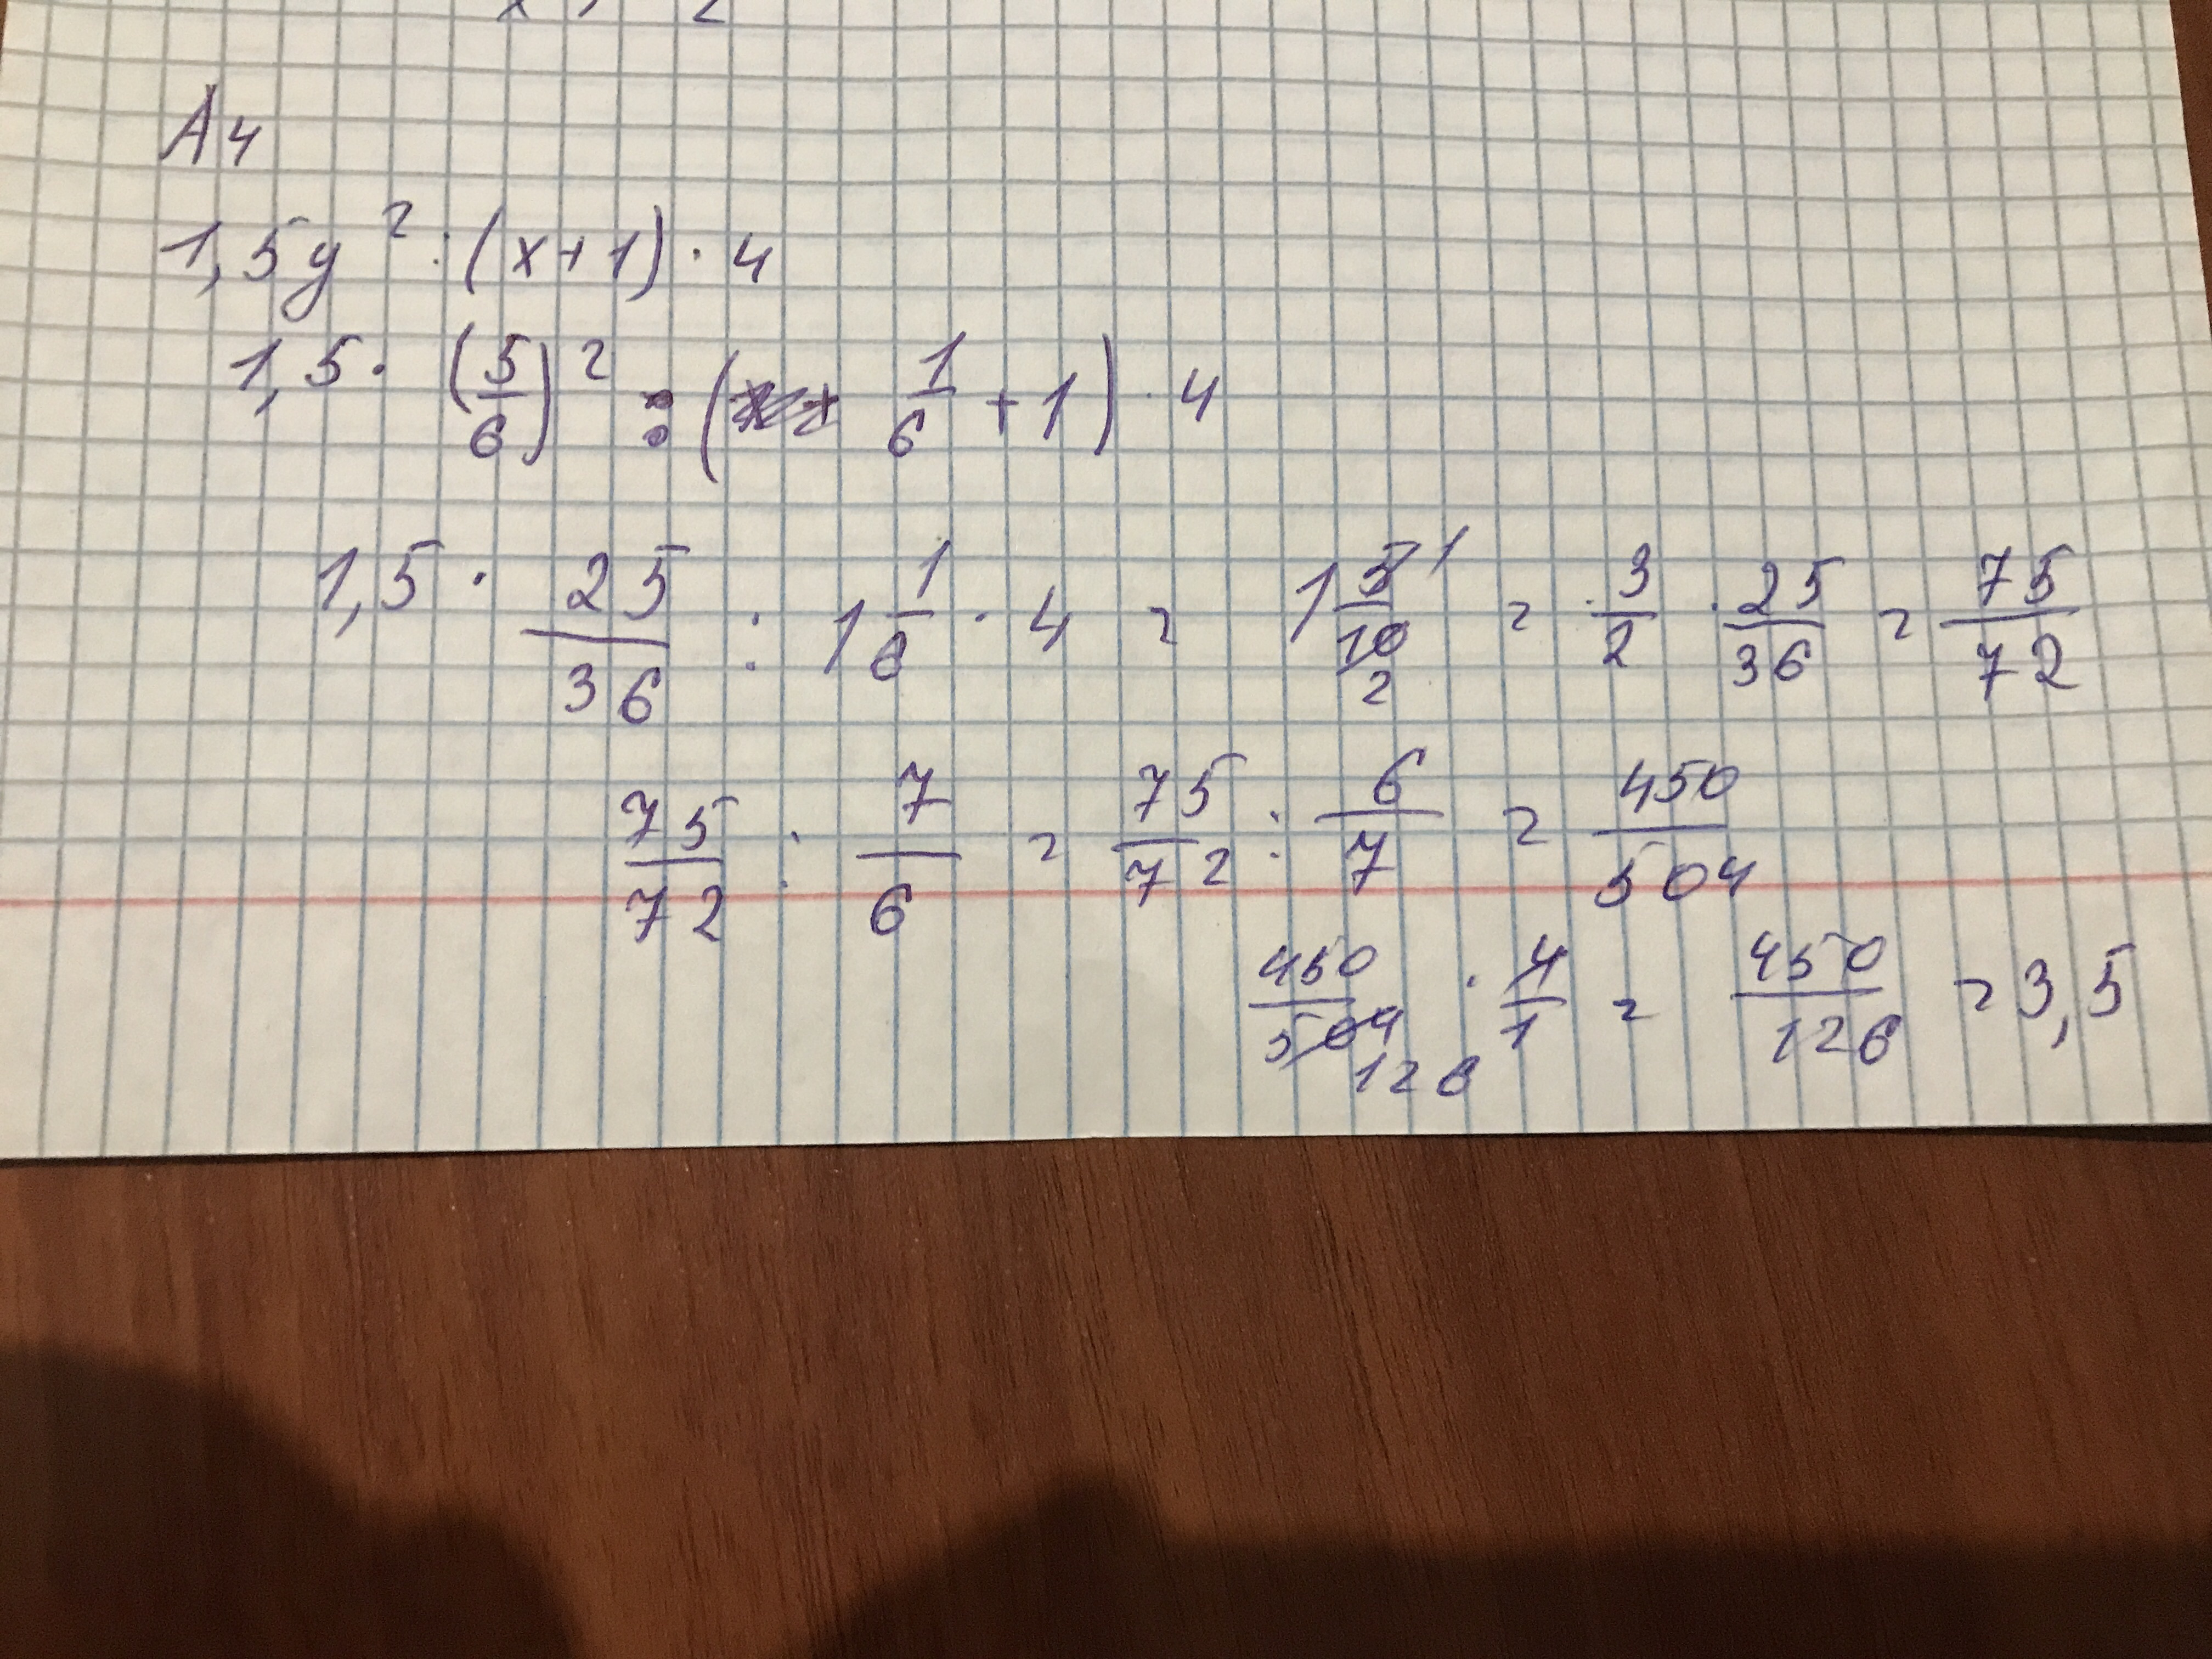 A4
1,5y² : (x+1) · 4
1,5 · (5/6)² : (1/6 + 1) · 4
1,5 · 25/36 : 1 1/6 · 4 = 1 5/10 1/2 = 3/2 · 25/36 = 75/72
75/72 : 7/6 = 75/72 : 6/7 = 450/504
450/504 126 · 4/1 = 450/126 = 3,5